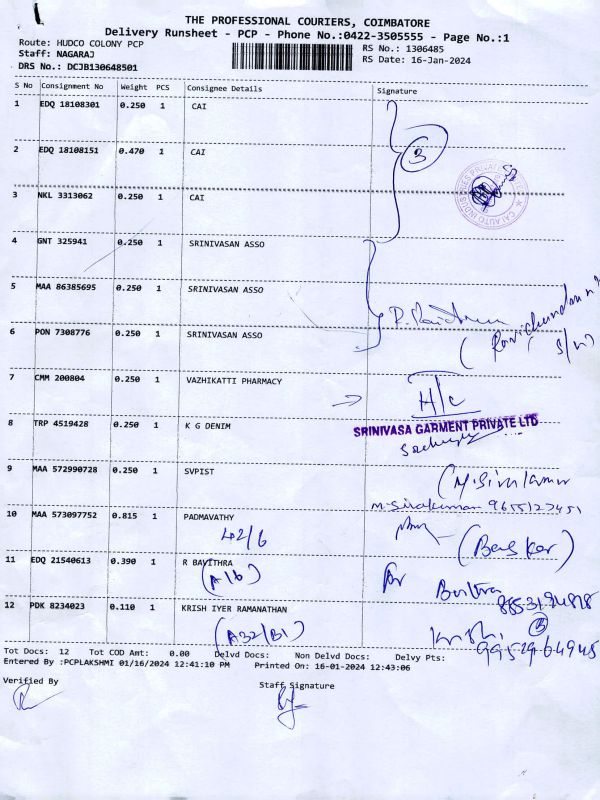 THE PROFESSIONAL COURIERS, COIMBATORE
Delivery Runsheet - PCP - Phone No.:0422-3505555 - Page No.:1
Route: HUDCO COLONY PCP
RS No.: 1306485
Staff: NAGARAJ
RS Date: 16-Jan-2024
DRS No.: DCJB130648501
S No Consignment No Weight PCS Consignee Details Signature
1 EDQ 18108301 0.250 1 CAI
3
2 EDQ 18108151 0.470 1 CAI
CAI AUTO INDUSTRIES PRIVATE
3 NKL 3313062 0.250 1 CAI
4 GNT 325941 0.250 1 SRINIVASAN ASSO
5 MAA 86385695 0.250 1 SRINIVASAN ASSO
6 PON 7308776 0.250 1 SRINIVASAN ASSO
(S/W)
7 CMM 200804 0.250 1 VAZHIKATTI PHARMACY
H/c
8 TRP 4519428 0.250 1 K G DENIM
SRINIVASA GARMENT PRIVATE LTD
9 MAA 572990728 0.250 1 SVPIST
(M.Sivakumar
M.Sivakumar 9655127451
10 MAA 573097752 0.815 1 PADMAVATHY
42/6
(Basker)
11 EDQ 21540613 0.390 1 R BAVITHRA
(A16)
for
12 PDK 8234023 0.110 1 KRISH IYER RAMANATHAN
(A32/B1)
Tot Docs: 12 Tot COD Amt: 0.00 Delvd Docs: Non Delvd Docs: Delvy Pts:
Entered By :PCPLAKSHMI 01/16/2024 12:41:10 PM Printed On: 16-01-2024 12:43:06
Verified By Staff Signature